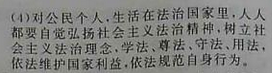 (4)对公民个人,生活在法治国家里,人人
都要自觉弘扬社会主义法治精神,树立社
会主义法治理念,学法、尊法、守法、用法,
依法维护国家利益,依法规范自身行为。